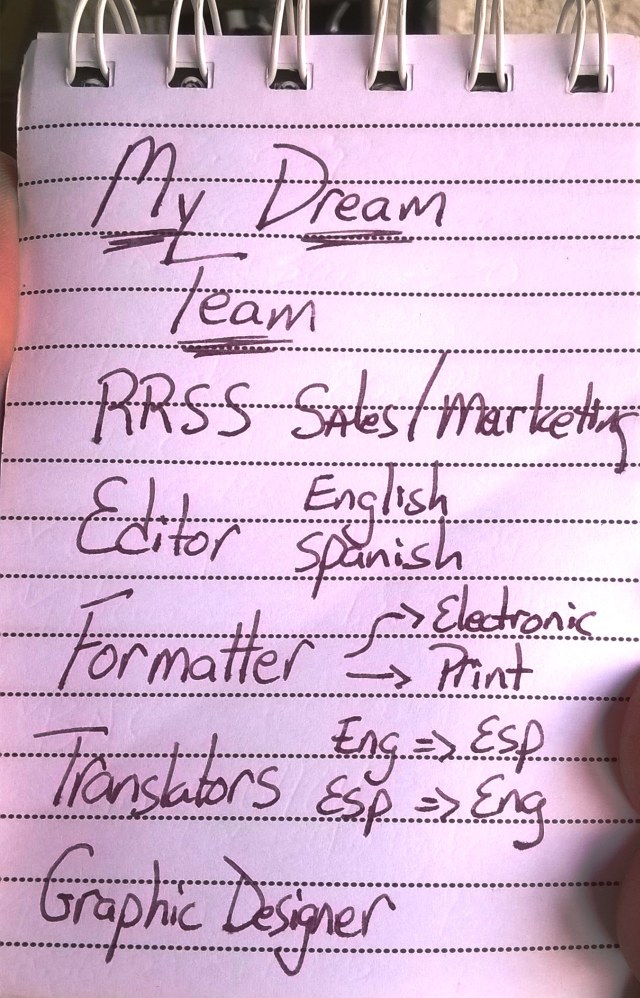 My Dream
Team
RRSS Sales/Marketing
Editor English
Spanish
Formatter → Electronic
→ Print
Translators Eng => Esp
Esp => Eng
Graphic Designer